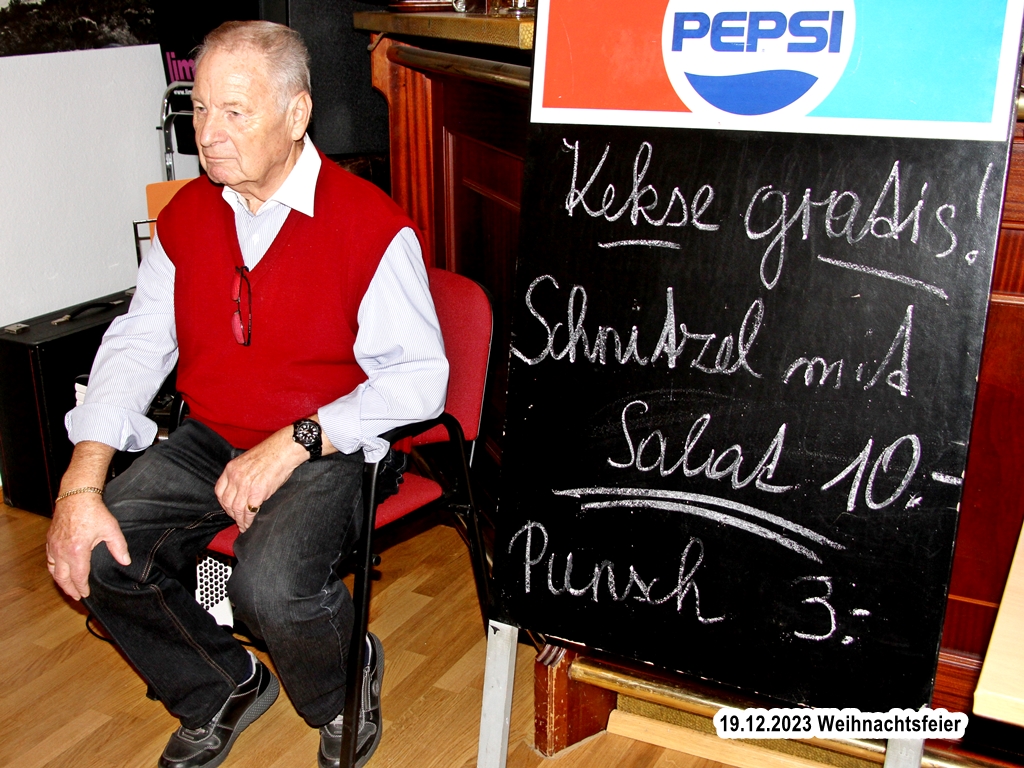 lim
www.lim
PEPSI
Kekse gratis!
Schnitzel mit
Salat 10.-
Punsch 3.-
19.12.2023 Weihnachtsfeier